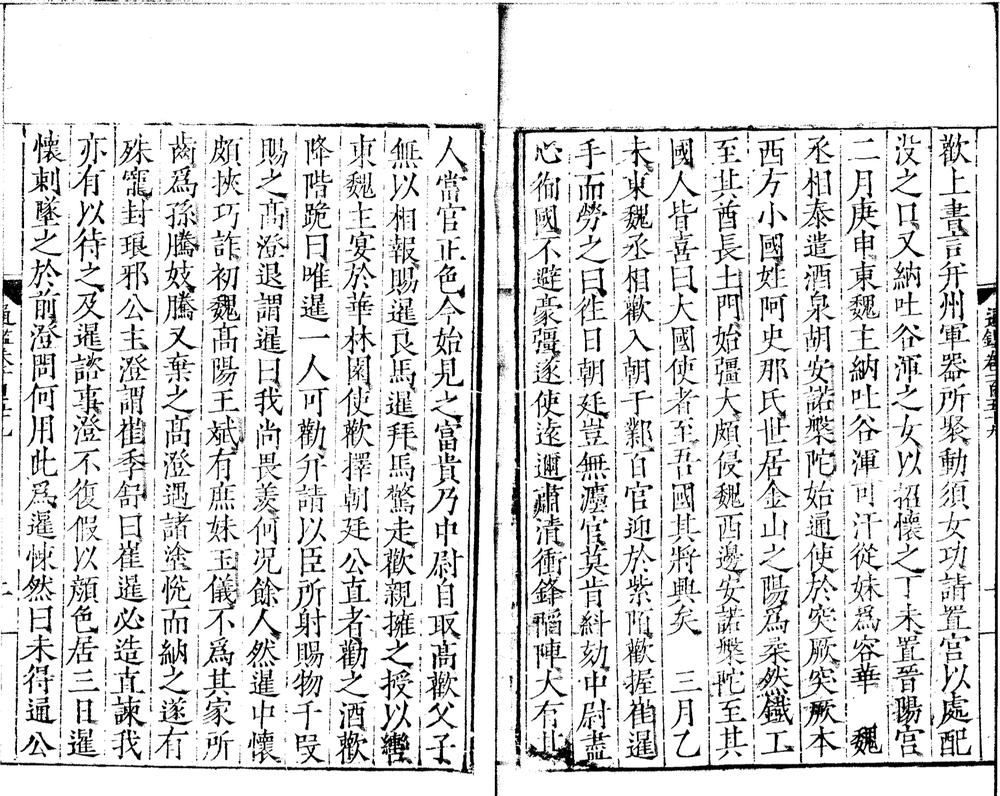 歡上書言幷州軍器所聚動須女功請置宮以處配
没之口又納吐谷渾之女以招懷之丁未置晉陽宮
二月庚申東魏主納吐谷渾可汗從妹爲容華　魏
丞相泰遣酒泉胡安諾槃陀始通使於突厥突厥本
西方小國姓阿史那氏世居金山之陽爲柔然鐵工
至其酋長土門始彊大頗侵魏西邊安諾槃陀至其
國人皆喜曰大國使者至吾國其將興矣　三月乙
未東魏丞相歡入朝于鄴百官迎於紫陌歡握崔暹
手而勞之曰往日朝廷豈無灋官莫肯糾劾中尉盡
心徇國不避豪彊遂使遠邇肅清衝鋒陷陣大有其
通鑑卷一百五十九
人當官正色今始見之富貴乃中尉自取高歡父子
無以相報賜暹良馬暹拜馬驚走歡親擁之授以轡
東魏主宴於華林園使歡擇朝廷公直者勸之酒歡
降階跪曰唯暹一人可勸幷請以臣所射賜物千段
賜之高澄退謂暹曰我尚畏羨何况餘人然暹中懷
頗挾巧詐初魏高陽王斌有庶妹玉儀不爲其家所
齒爲孫騰妓騰又棄之高澄遇諸塗悅而納之遂有
殊寵封琅邪公主澄謂崔季舒曰崔暹必造直諫我
亦有以待之及暹諮事澄不復假以顏色居三日暹
懷刺墜之於前澄問何用此爲暹悚然曰未得通公